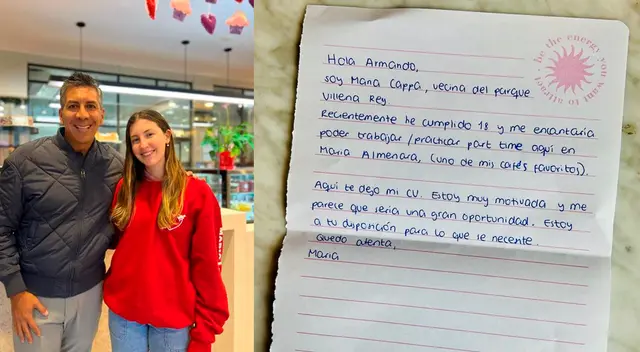 be the energy you want to attract
Hola Armando,
soy Maria Cappa, vecina del parque
Villena Rey.
Recientemente he cumplido 18 y me encantaría
poder trabajar/practicar part time aquí en
Maria Almenara, (uno de mis cafés favoritos).
Aquí te dejo mi CV. Estoy muy motivada y me
parese que sería una gran oportunidad. Estoy
a tu disponción para lo que se necente.
Quedo atenta,
Maria